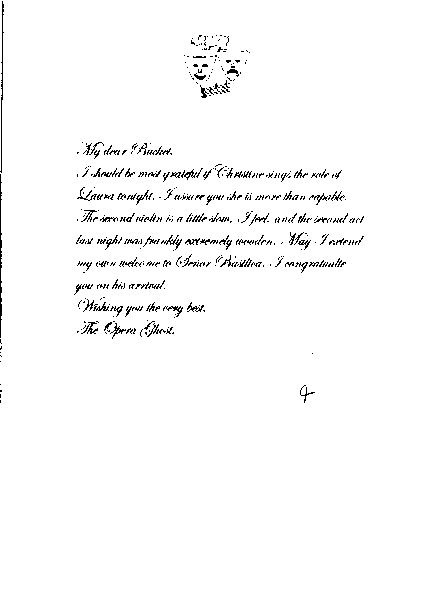 My dear Ruchet.
I should be most grateful if Christine sings the role of
Laura tonight. I assure you she is more than capable.
The second violin is a little slow, I feel, and the second act
last night was frankly extremely wooden. May I extend
my own welcome to Senor Basilica. I congratulate
you on his arrival.
Wishing you the very best.
The Opera Ghost.